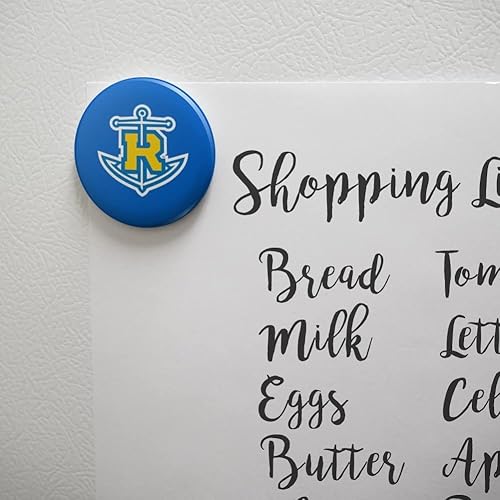 R
Shopping Li
Bread Tom
Milk Lett
Eggs Cel
Butter Ap